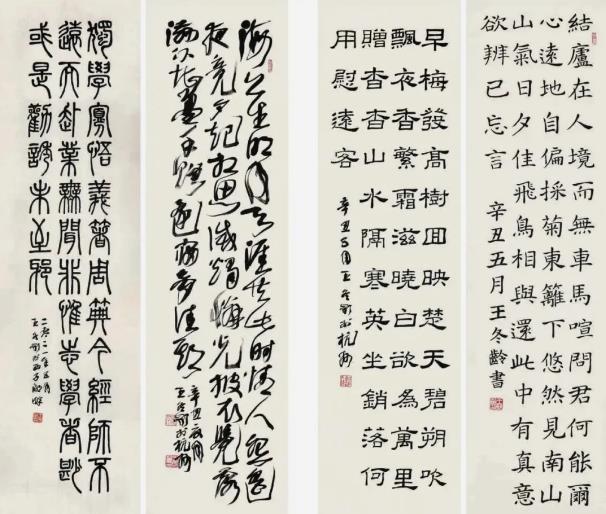 結廬在人境而無車馬喧問君何能爾
心遠地自偏採菊東籬下悠然見南山
山氣日夕佳飛鳥相與還此中有真意
欲辨已忘言 辛丑五月王冬齡書
早梅發高樹回映楚天碧朔吹
飄夜香繁霜滋曉白欲為萬里
贈杳杳山水隔寒英坐銷落何
用慰遠客
辛丑五月王冬齡於杭州
海上生明月天涯共此時情人怨遙
夜竟夕起相思滅燭憐光披衣覺露
滋不堪盈手贈還寢夢佳期
辛丑五月
王冬齡於杭州
獨學寡悟義著周典今經師不
遠而赴業無聞非惟志學者尠
或是勸誘未至邪
二〇二一年五月
王冬齡於西子湖畔